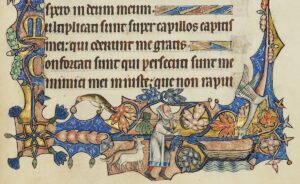 spero in deum meum
ultiplicati sunt super capillos capitis
mei: qui oderunt me gratis
Confortati sunt qui persecuti sunt me
inimici mei iniuste: que non rapui